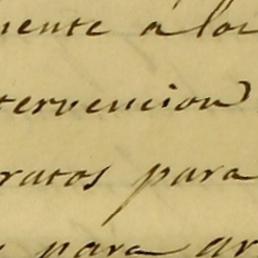 mente á los
tervencion
ratos para
para ar